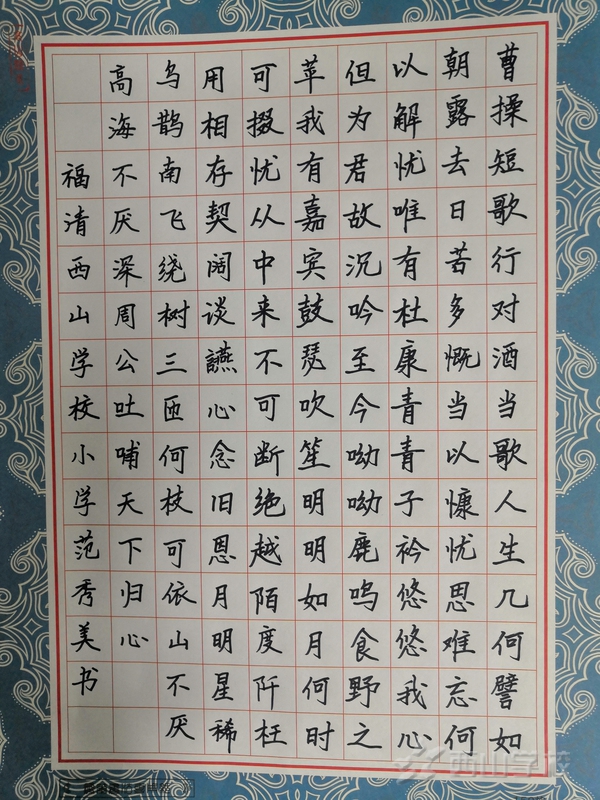 曹操短歌行对酒当歌人生几何譬如
朝露去日苦多慨当以慷忧思难忘何
以解忧唯有杜康青青子衿悠悠我心
但为君故沉吟至今呦呦鹿鸣食野之
苹我有嘉宾鼓瑟吹笙明明如月何时
可掇忧从中来不可断绝越陌度阡枉
用相存契阔谈讌心念旧恩月明星稀
乌鹊南飞绕树三匝何枝可依山不厌
高海不厌深周公吐哺天下归心
福清西山学校小学范秀美书
西山学校